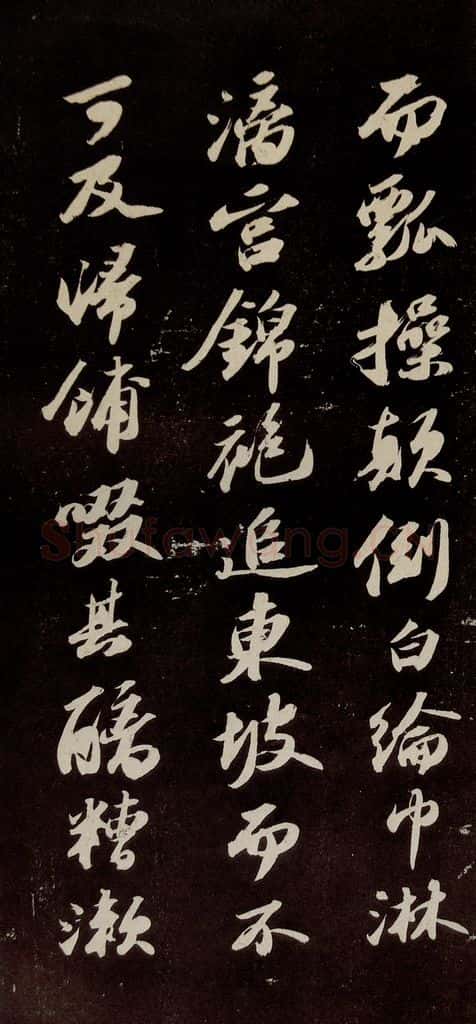 而瓢操顛倒白綸巾淋
漓宮錦袍追東坡而不
可及歸餔啜其醨糟漱